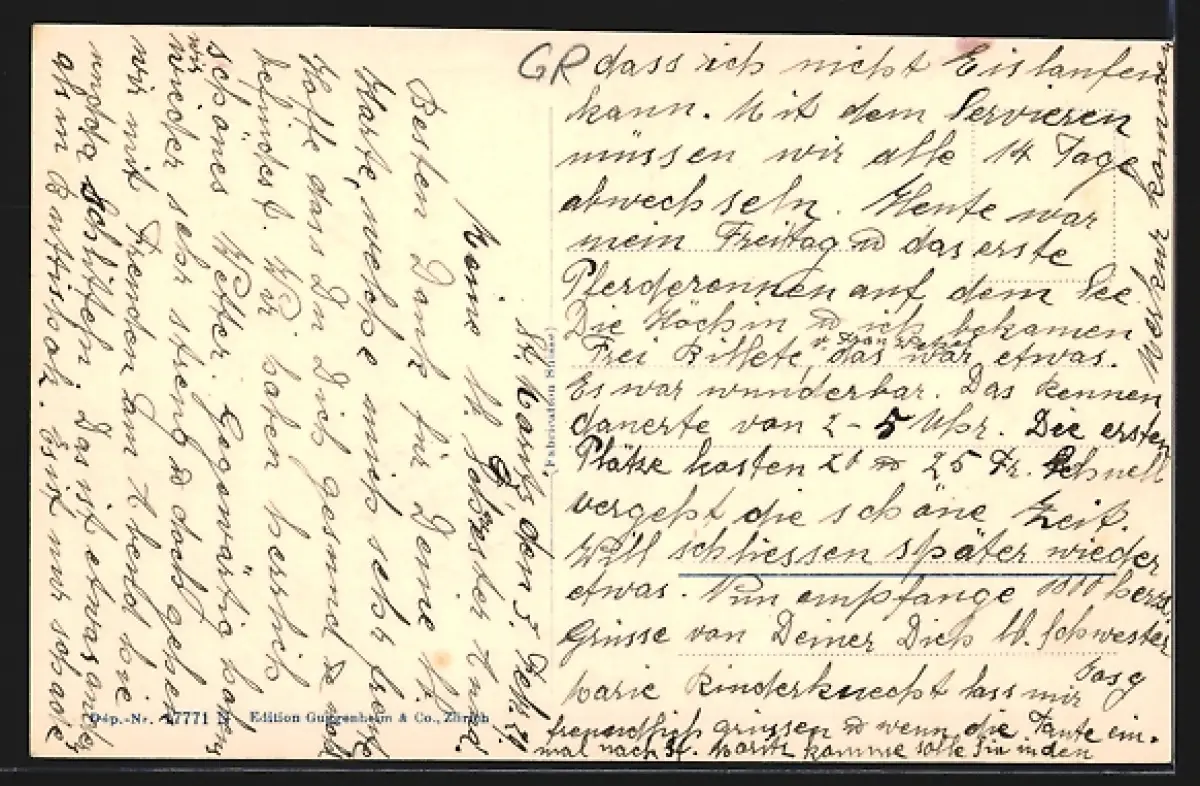 St. Moritz den 3. Feb. 21.
Meine lb. Schwester Anna.
Besten Dank für Deine lb.
Karte, welche mich sehr freute.
Hoffe dass Du Dich gesund & wohl
befindest. Wir haben herrlich
schönes Wetter. Gegenwärtig haben
wir
wieder sehr streng & doch gehen
wir mit Fremden am Abend
schlitteln, das ist etwas anderes
als in Es ist nur schade
GR dass ich nicht Eislaufen
kann. Mit dem Servieren
müssen wir alle 14 Tage
abwechseln. Heute war
mein Freitag & das erste
Pferderennen auf dem See
Die Köchin & ich bekamen
v. Frau
Frei Billete, das war etwas.
Es war wunderbar. Das Rennen
dauerte von 2-5 Uhr. Die ersten
Plätze kosten 20 & 25 Fr. Schnell
vergeht die schöne Zeit.
Will schliessen später wieder
etwas. Nun empfange 1000 herzl.
Grüsse von Deiner Dich lb. Schwester
Marie Rinderknecht lass mir
freundlich grüssen & wenn die Tante ein-
mal nach St. Moritz komme solle sie in den
(Fabrication Suisse)
Dép.-Nr. 17771 N Edition Guggenheim & Co., Zürich